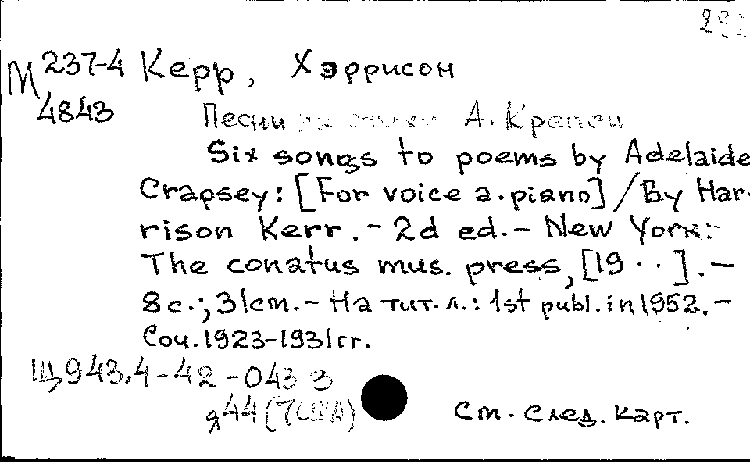 М 237-4 Керр, Хэррисон
4843
Песни на стихи А. Крепси
Six songs to poems by Adelaide
Crapsey: [For voice a. piano] / By Har-
rison Kerr. - 2d ed. - New York:
The conatus mus. press, [19 . . ]. -
8 с.; 31 cm. - На тит. л.: 1st publ. in 1952. -
Соч. 1923-1931 гг.
Щ943.4-42-043 3
я44(7США)
См. след. карт.